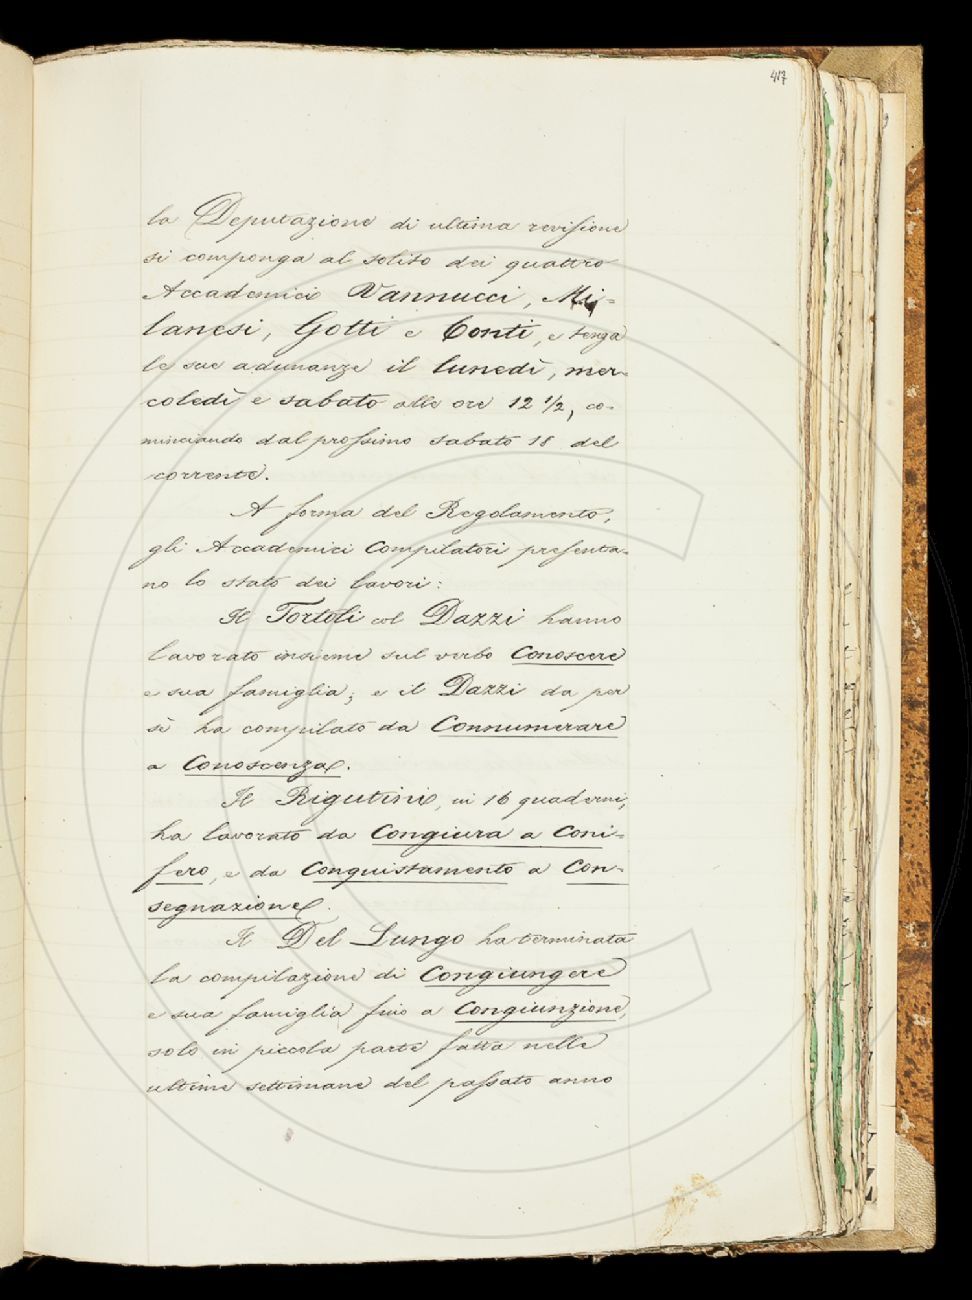 417
la Deputazione di ultima revisione
si componga al solito dei quattro
Accademici Vannucci, Mi-
lanesi, Gotti e Conti, e tenga
le sue adunanze il lunedì, mer-
coledì e sabato alle ore 12 1/2, co-
minciando dal prossimo sabato 18 del
corrente.
A forma del Regolamento,
gli Accademici Compilatori presenta-
no lo stato dei lavori:
Il Tortoli col Dazzi hanno
lavorato insieme sul verbo Conoscere
e sua famiglia; e il Dazzi da per
sè ha compilato da Connumerare
a Conoscenza.
Il Rigutini, in 16 quaderni,
ha lavorato da Congiura a Coni-
fero, e da Conquistamento a Con-
segnazione.
Il Del Lungo ha terminata
la compilazione di Congiungere
e sua famiglia fino a Congiunzione,
solo in piccola parte fatta nelle
ultime settimane del passato anno